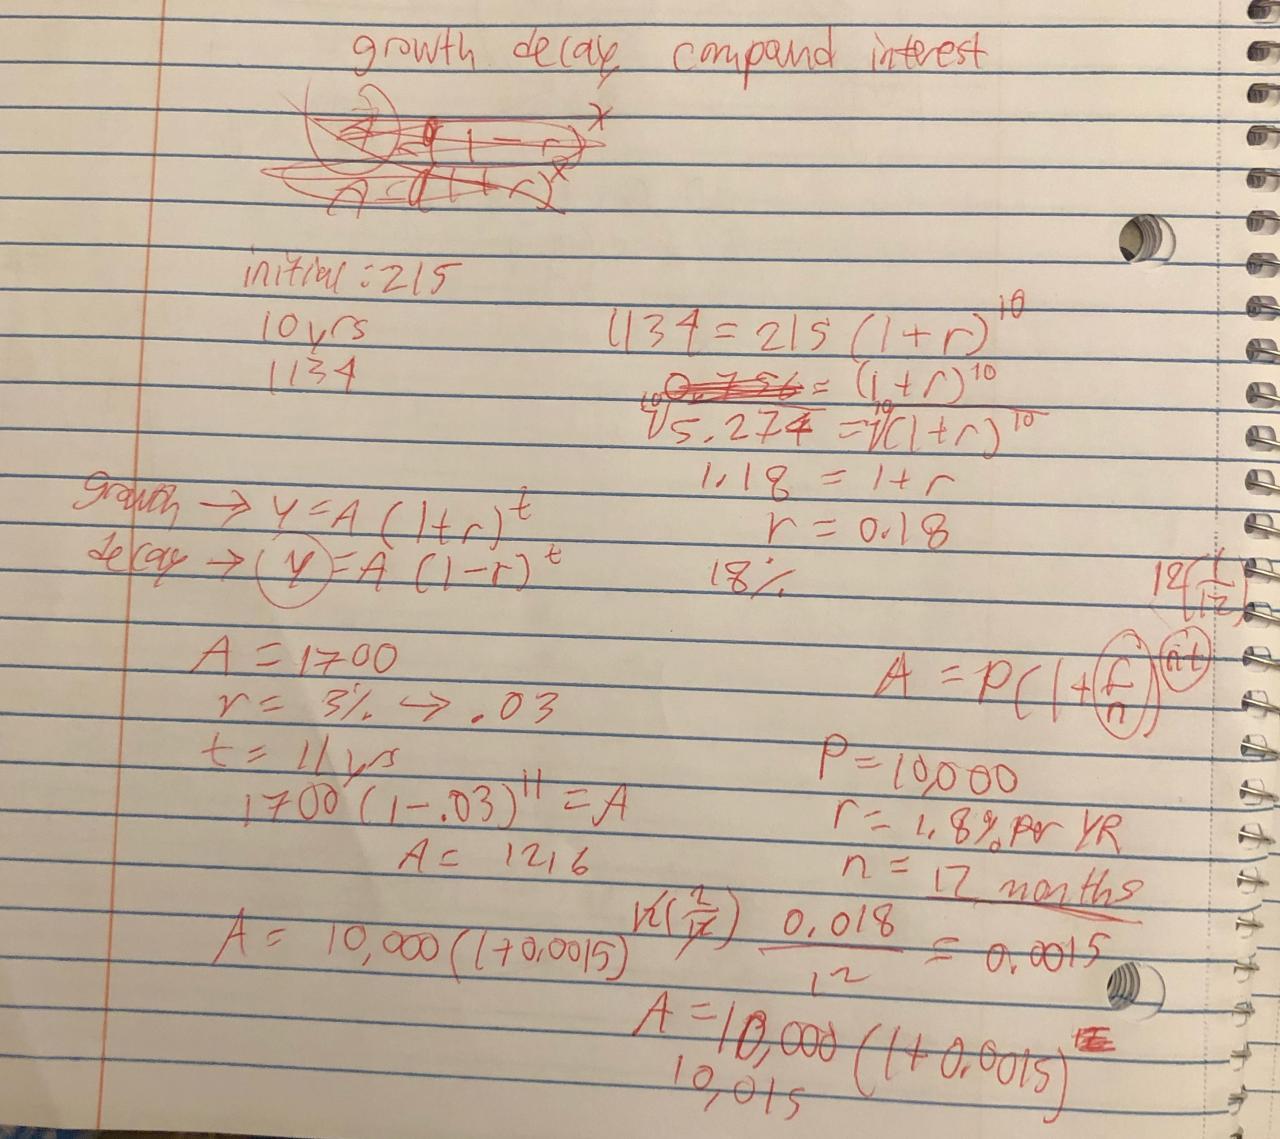 growth decay compound interest
A = (1 + r)^x
initial : 215
10 yrs
1134
1134 = 215 (1 + r)^10
0.756 = (1 + r)^10
¹⁰√5.274 = ¹⁰√(1 + r)^10
1.18 = 1 + r
r = 0.18
18%
growth → Y = A (1 + r)^t
decay → y = A (1 - r)^t
12(1/12)
A = 1700
r = 3% → .03
t = 11 yrs
1700 (1 - .03)^11 = A
A = 1216
A = P(1 + r/n)^nt
P = 10,000
r = 1.8% per YR
n = 12 months
0.018/12 = 0.0015
A = 10,000 (1 + 0.0015)
A = 10,000 (1 + 0.0015)
10,015